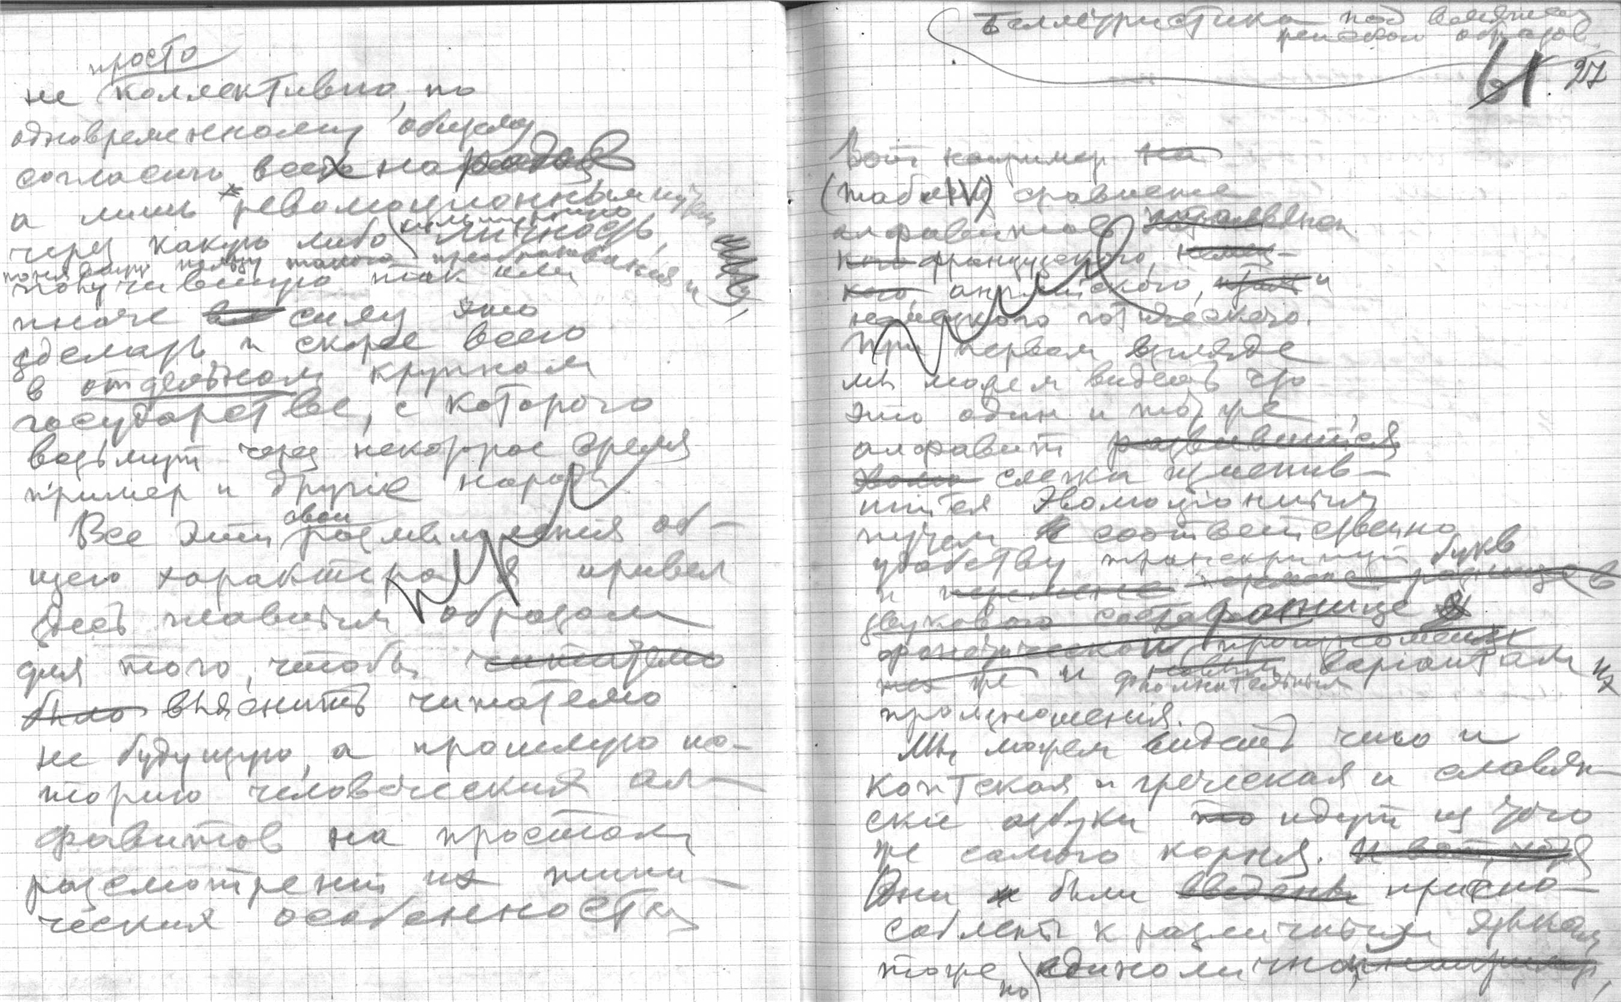 просто
не коллективно, по
одновременному общему
согласию всех народов
а лишь революционным путем
через какую либо личность,
получившую так или
иначе силу это
сделать и скорее всего
в отдельном крупном
государстве, с которого
возьмут через некоторое время
пример и другие народы
Все эти свои размышления об-
щего характера я привел
здесь главным образом
для того, чтобы читателю
было выяснить читателю
не будущую, а прошлую ис-
торию человеческих ал-
фавитов на простом
разсмотрении их типи-
ческих особенностей
Беллетристика под влиянием
61. 27
Вот например на
(табл IV) сравнение
алфавитов
французского, немец-
кого, английского, и
немецкого готического.
При первом взгляде
мы можем видеть что
это один и тот же
алфавит развившийся
слегка изменив-
шийся эволюционным
путем соответственно
удобству транскрипции букв
и
звукового состава разнице в
фонетической произношения
же и вариантам их
произношения.
Мы можем видеть что и
коптская и греческая и славян-
ские азбуки то идут из того
же самого корня. И вот, хотя
Они и были введены приспо-
соблены к различным языкам
тоже по единолично, например,